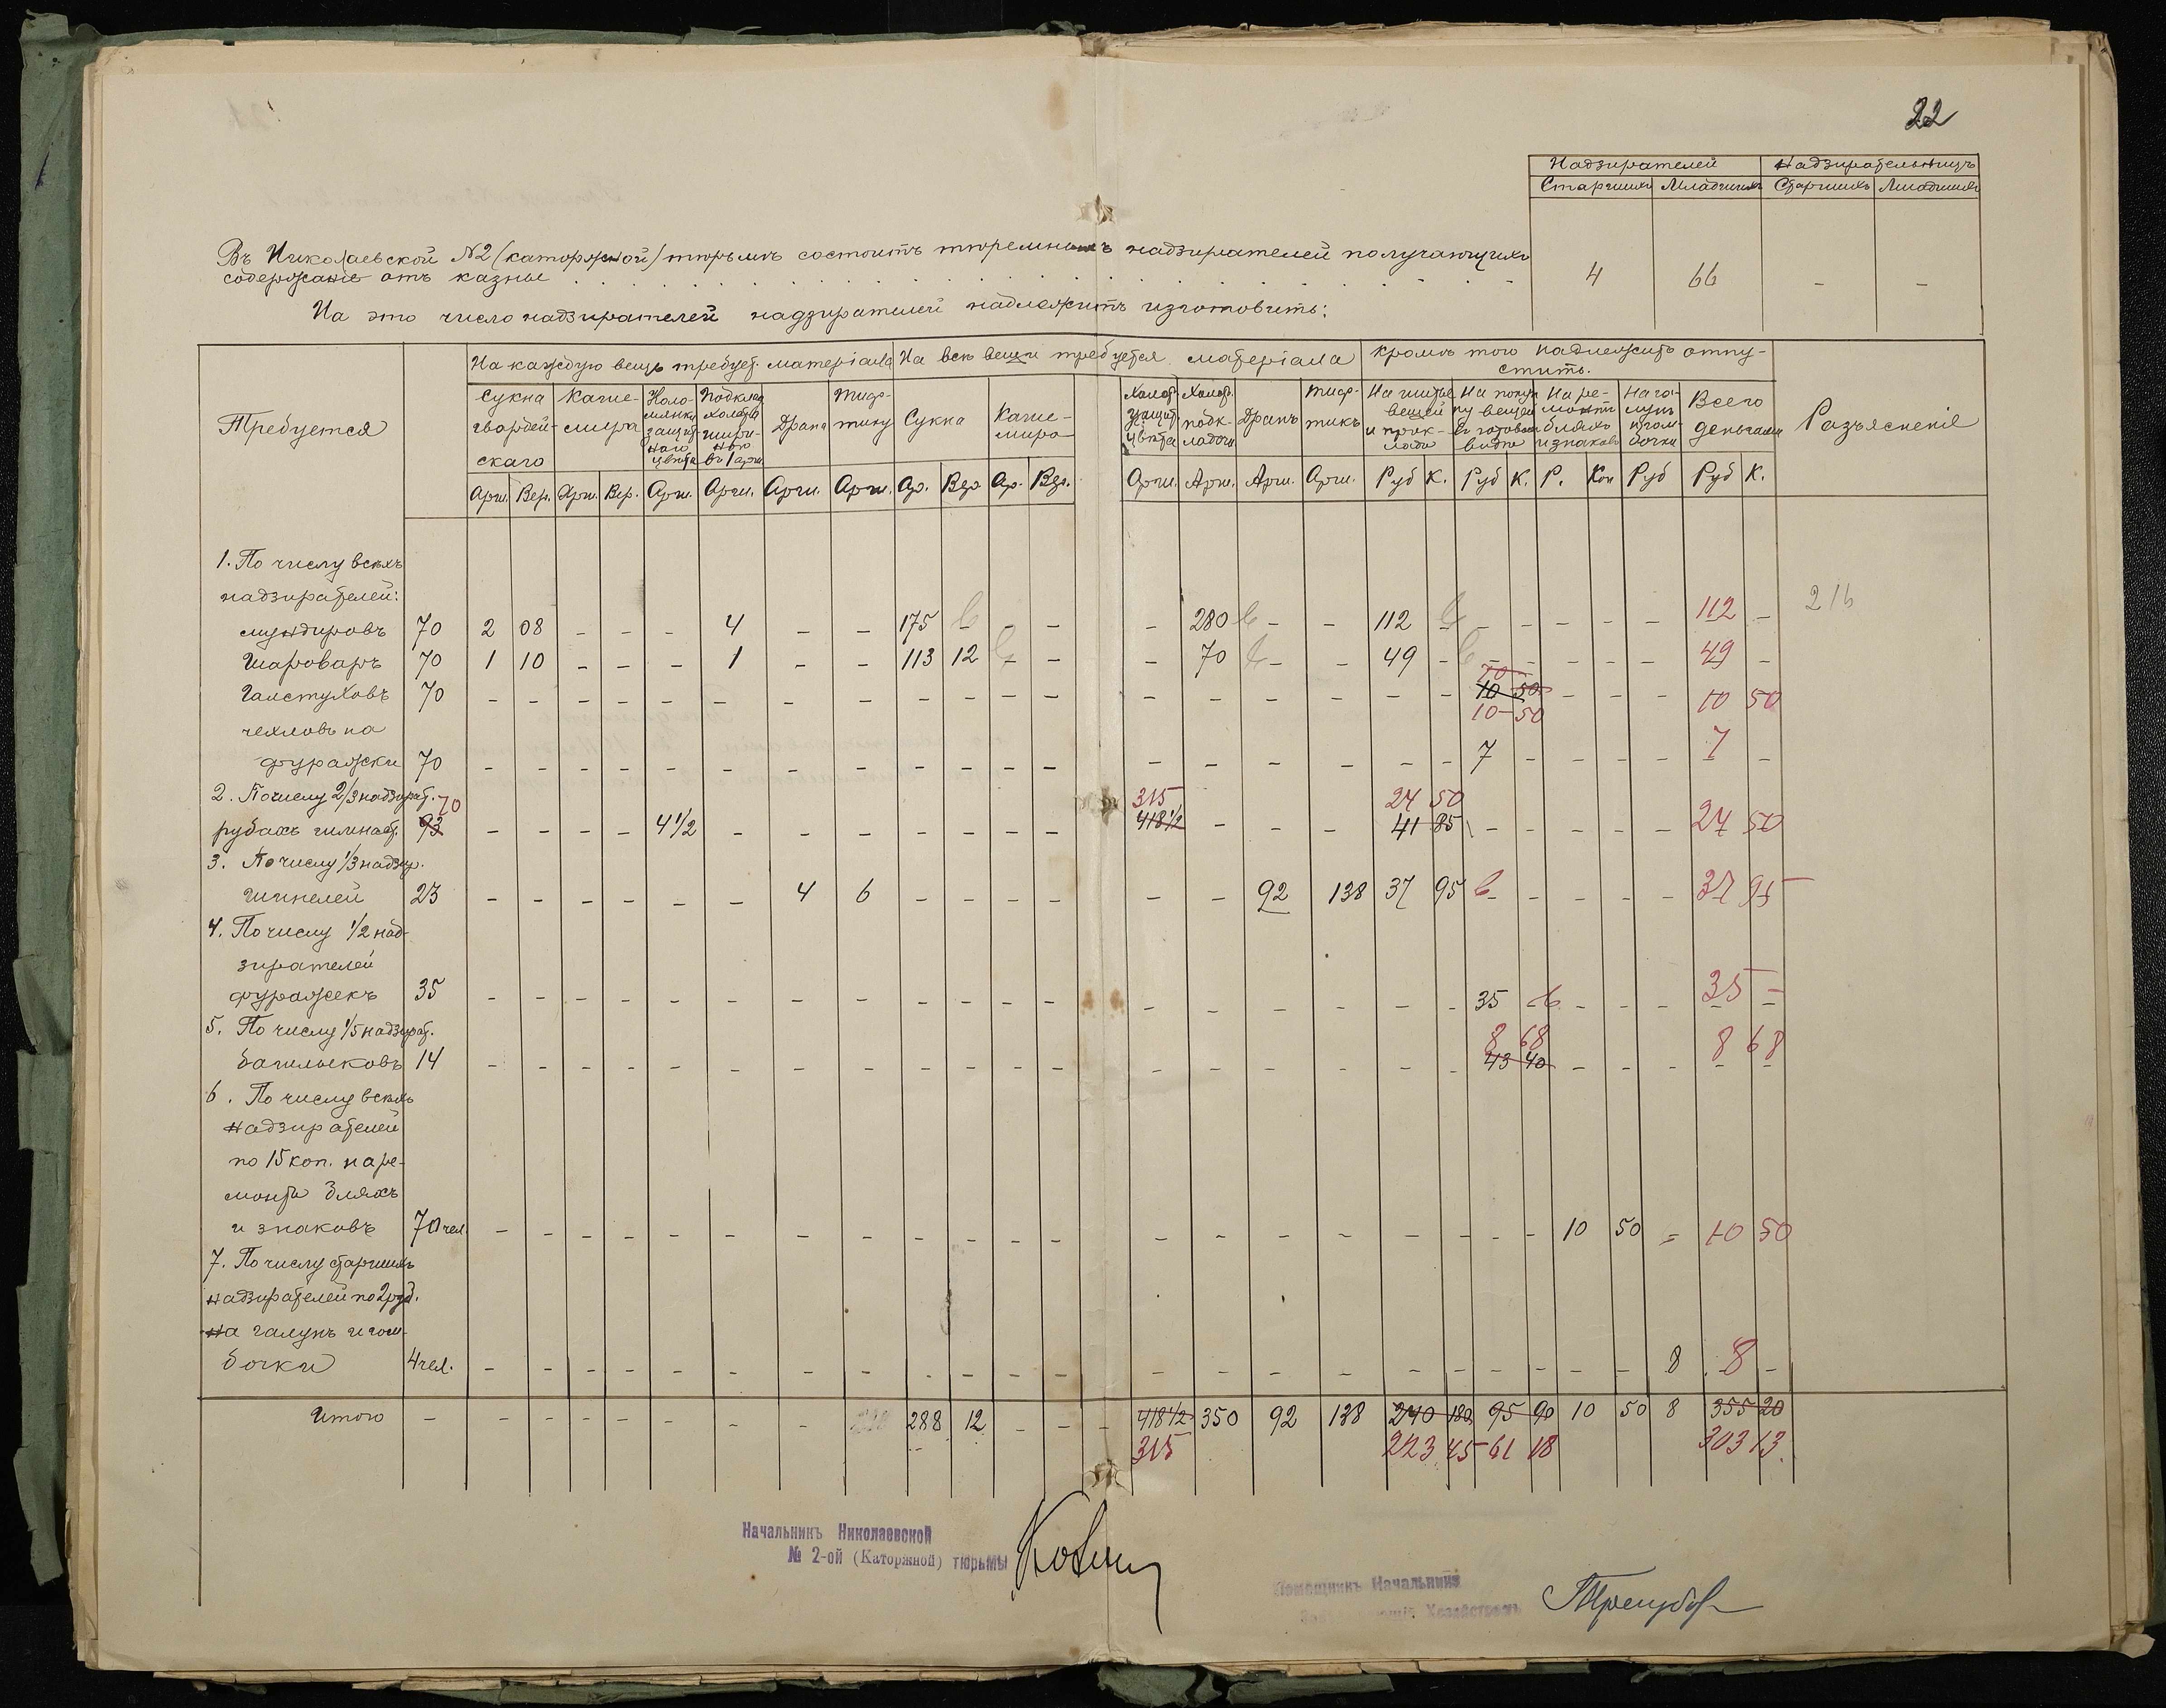 22
Надзирателей Надзирательницъ
Старшихъ Младшихъ Старшихъ Младшихъ
Въ Николаевской №2 (каторжной) тюрьмѣ состоитъ тюремныхъ надзирателей получающихъ
содержаніе отъ казны 4 66 - -
На это число надзирателей надзирателей надлежитъ изготовить:
Требуется
На каждую вещь требует. матеріала
На всѣ вещи требуется матеріала
Кромѣ того надлежитъ отпустить.
Разъясненіе
Сукна гвардейскаго
Кашемира
Коломянки защитнаго цвѣта
Подклад. холста шириною въ 1 арш.
Драпа
Тифтику
Сукна
Кашемира
Холст. защит. цвѣта
Холст. подкладоч.
Драпъ
Тифтикъ
На шитье вещей и приклада
На покупку вещей въ готовомъ видѣ
На ремонтъ бляхъ и знаковъ
На галунъ и гомбочки
Всего деньгами
Арш. Вер. Арш. Вер. Арш. Арш. Арш. Арш. Ар. Вер. Ар. Вер. Арш. Арш. Арш. Арш. Руб К. Руб К. Р. Коп Руб Руб К.
1. По числу всѣхъ
надзирателей:
мундировъ 70 2 08 - - - 4 - - 175 - - - - 280 - - 112 - - - - - - 112 - 216
Шароваръ 70 1 10 - - - 1 - - 113 12 - - - 70 - - 49 - - - - - - 49 -
70
Галстуховъ 70 - - - - - - - - - - - - - - - - - - 10 50 - - - 10 50
10-50
чехловъ на
фуражки 70 - - - - - - - - - - - - - - - - - - 7 - - - - 7 -
2. По числу 2/3 надзират. 70 315 24 50
рубахъ гимнаст. 93 - - - - 4 1/2 - - - - - - - 418 1/2 - - - 41 85 - - - - - 24 50
3. По числу 1/3 надзир.
Шинелей 23 - - - - - - 4 6 - - - - - - 92 138 37 95 - - - - - 37 95
4. По числу 1/2 над-
зирателей
фуражекъ 35 - - - - - - - - - - - - - - - - - - 35 - - - - 35 -
5. По числу 1/5 надзират. 8 68
башлыковъ 14 - - - - - - - - - - - - - - - - - - 43 40 - - - 8 68
6. По числу всѣхъ
надзирателей
по 15 коп. на ре-
монтъ бляхъ
и знаковъ 70 чел. - - - - - - - - - - - - - - - - - - - - 10 50 - 10 50
7. По числу старшихъ
надзирателей по 2 руб.
на галунъ и гом-
бочки 4 чел. - - - - - - - - - - - - - - - - - - - - - - 8 8 -
Итого - - - - - - - - - 288 12 - - 418 1/2 350 92 138 240 180 95 90 10 50 8 355 20
315 223 45 61 18 303 13
Начальникъ Николаевской
№ 2-ой (Каторжной) тюрьмы
Помощникъ Начальника
Хозяйствомъ